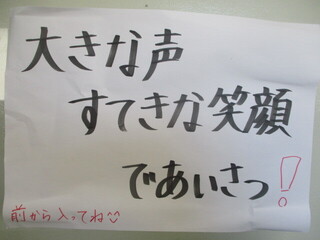 大きな声
すてきな笑顔
であいさつ!
前から入ってね☺